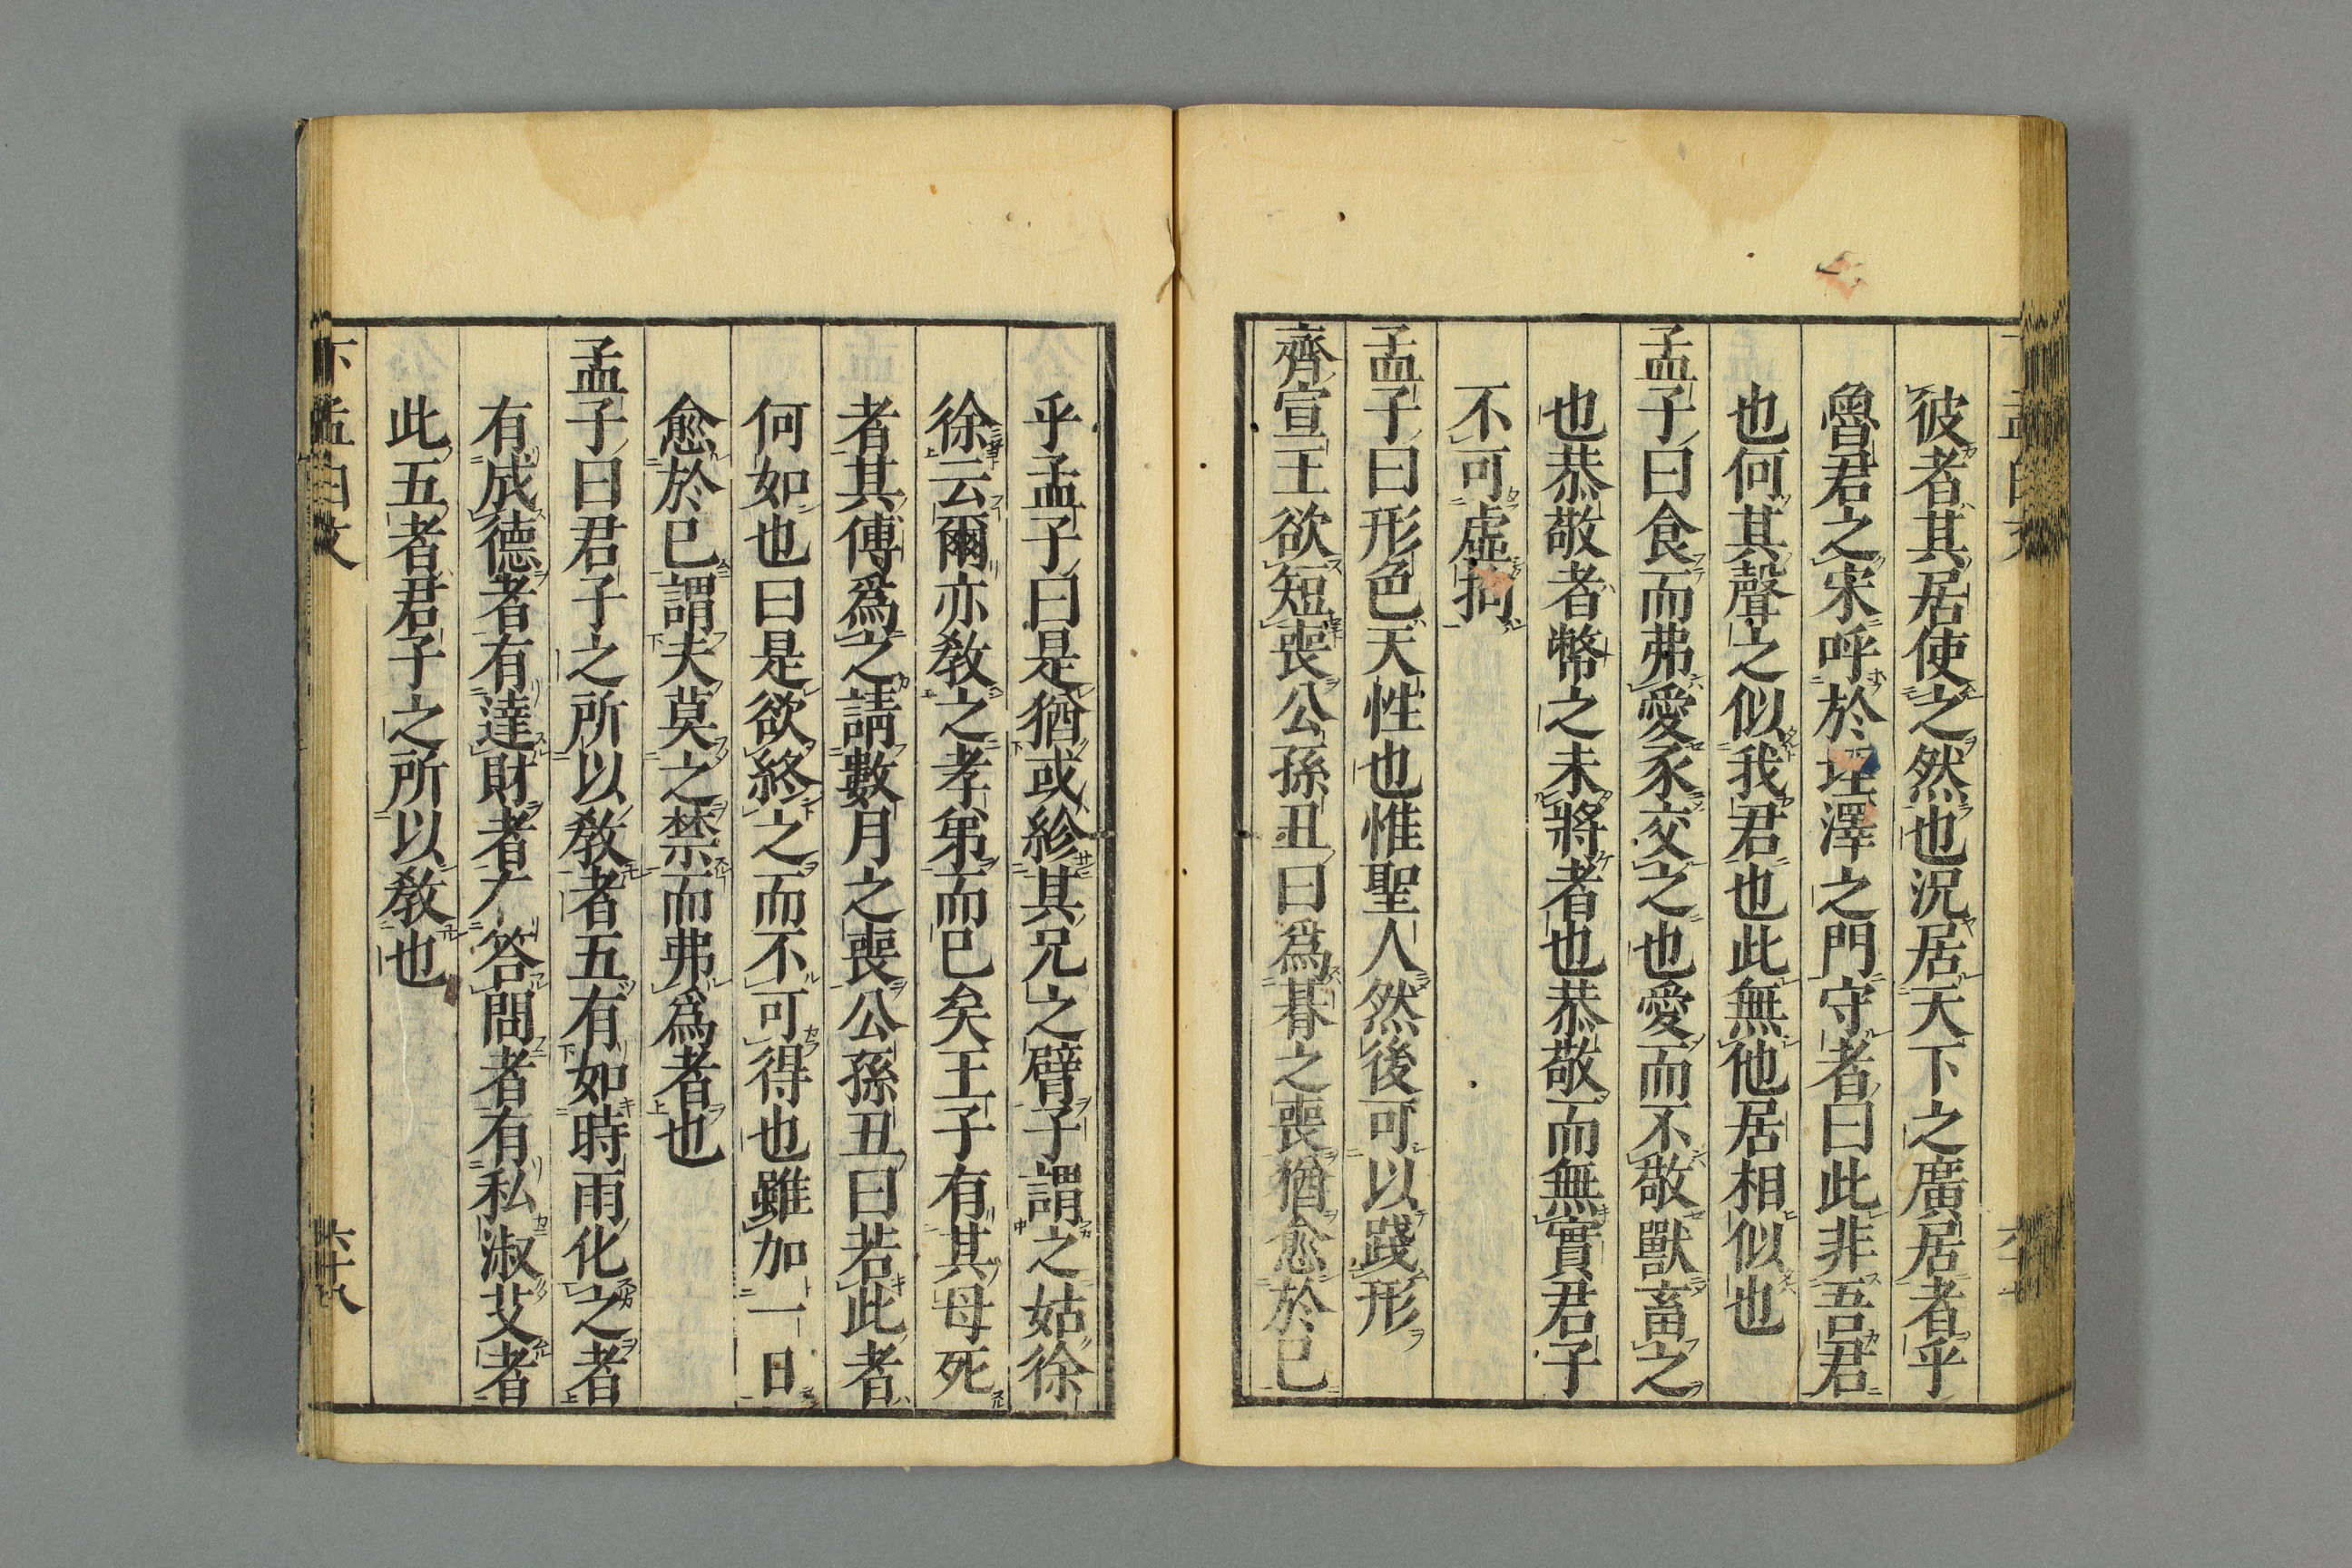 彼者其居使之然也況居天下之廣居者乎
魯君之宋呼於垤澤之門守者曰此非吾君
也何其聲之似我君也此無他居相似也
孟子曰食而弗愛豕交之也愛而不敬獸畜之
也恭敬者幣之未將者也恭敬而無實君子
不可虛拘
孟子曰形色天性也惟聖人然後可以踐形
齊宣王欲短喪公孫丑曰爲朞之喪猶愈於已
乎孟子曰是猶或紾其兄之臂子謂之姑徐
徐云爾亦敎之孝弟而已矣王子有其母死
者其傅爲之請數月之喪公孫丑曰若此者
何如也曰是欲終之而不可得也雖加一日
愈於已謂夫莫之禁而弗爲者也
孟子曰君子之所以敎者五有如時雨化之者
有成德者有達財者有答問者有私淑艾者
此五者君子之所以敎也
下孟白文 六十八